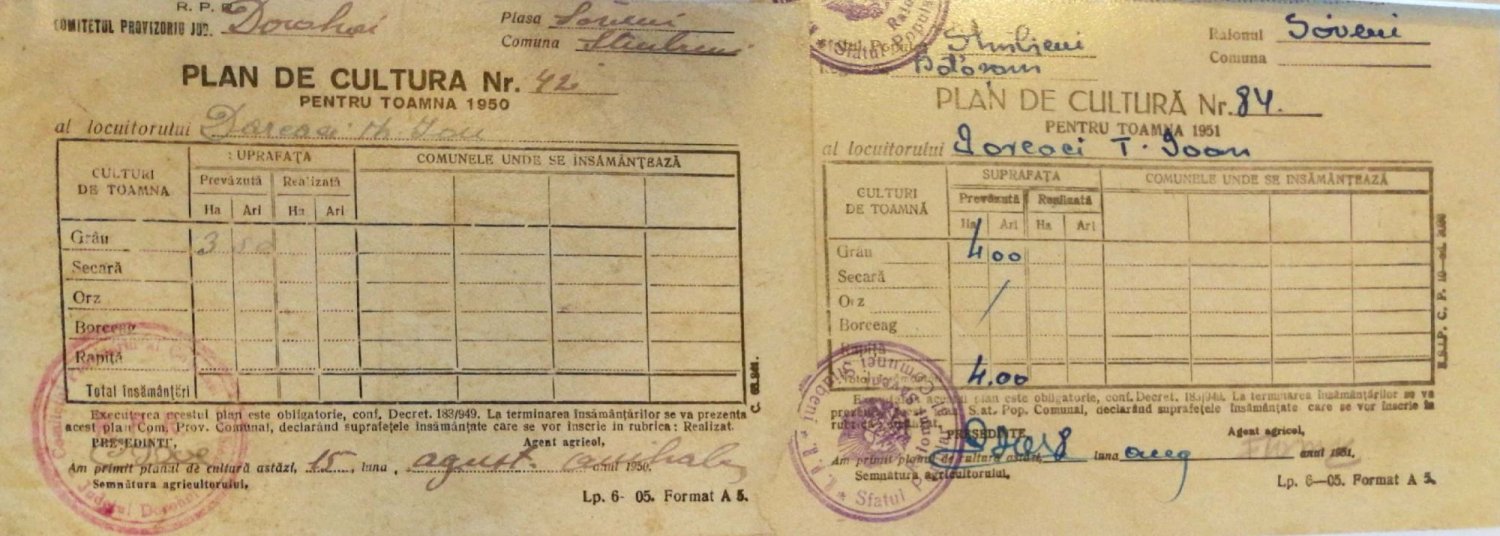 R. P. R.
COMITETUL PROVIZORIU JUD. Dorohoi
Plasa Săveni
Comuna Știubieni
PLAN DE CULTURA Nr. 42
PENTRU TOAMNA 1950
al locuitorului
CULTURI DE TOAMNA
SUPRAFAȚA
COMUNELE UNDE SE ÎNSĂMÂNȚEAZĂ
Prevăzută Realizată
Ha Ari Ha Ari
Grâu 3 50
Secară
Orz
Borceag
Rapiță
Total însămânțări
Executarea acestui plan este obligatorie, conf. Decret. 183/949. La terminarea însămânțărilor se va prezenta
acest plan Com. Prov. Comunal, declarând suprafețele însămânțate care se vor înscrie în rubrica: Realizat.
PREȘEDINTE,
Agent agricol,
Am primit planul de cultură astăzi, 15, luna, agust anul 1950.
Semnătura agricultorului,
Lp. 6- 05. Format A 5.
C. 63.944.
Sfatul Popular Știubieni
Raionul Săveni
Botoșani
Comuna
PLAN DE CULTURĂ Nr. 84.
PENTRU TOAMNA 1951
al locuitorului Dorcaci T. Ioan
CULTURI DE TOAMNĂ
SUPRAFAȚA
COMUNELE UNDE SE ÎNSĂMÂNȚEAZĂ
Prevăzută Realizată
Ha Ari Ha Ari
Grâu 4 00
Secară
Orz
Borceag
Rapiță
Total însămânțări 4.00
Executarea acestui plan este obligatorie, conf. Decret. 183/949. La terminarea însămânțărilor se va
prezenta acest S.at. Pop. Comunal, declarând suprafețele însămânțate care se vor înscrie în
rubrica
PREȘEDINTE
Agent agricol,
Am primit planul de cultură astăzi, luna aug anul 1951.
Semnătura agricultorului,
Lp. 6—05. Format A 5.
Sfatul Popular al Comunei Știubieni